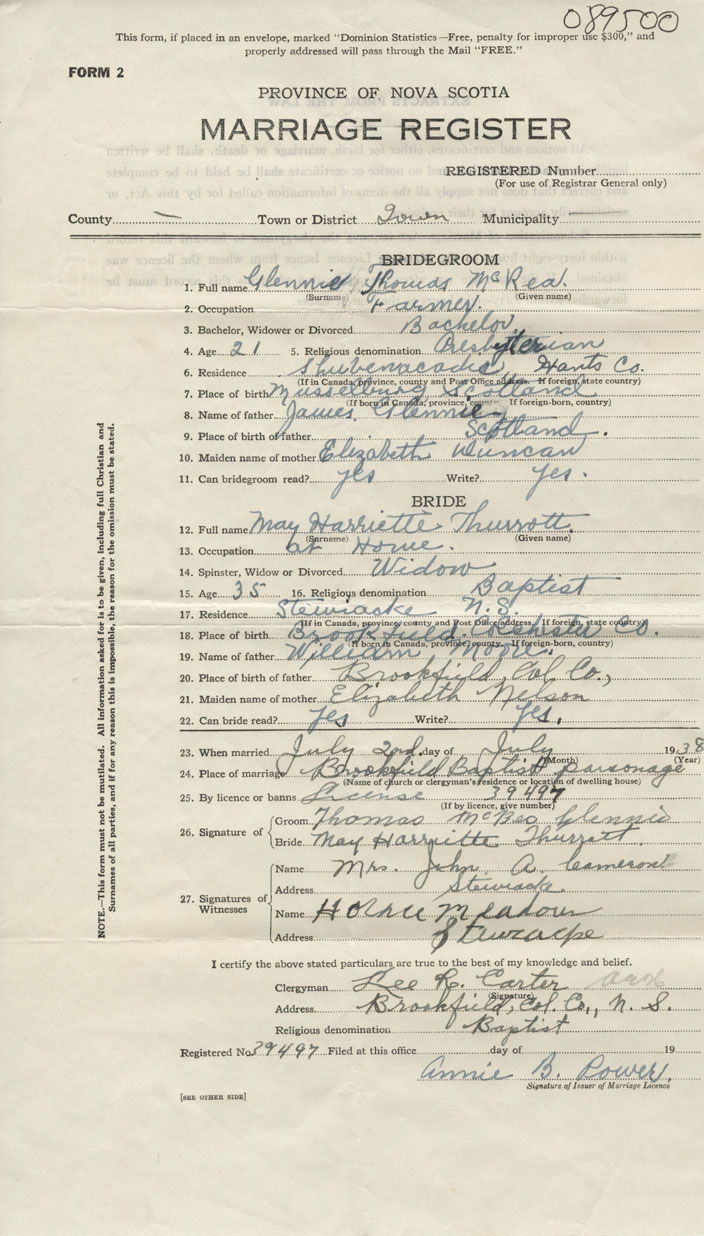 089500
This form, if placed in an envelope, marked "Dominion Statistics—Free, penalty for improper use $300," and
properly addressed will pass through the Mail "FREE."
FORM 2
PROVINCE OF NOVA SCOTIA
MARRIAGE REGISTER
REGISTERED Number
(For use of Registrar General only)
County — Town or District Town Municipality
BRIDEGROOM
1. Full name Glennie Thomas McRea.
(Surname) (Given name)
2. Occupation Farmer.
3. Bachelor, Widower or Divorced Bachelor.
4. Age 21 5. Religious denomination Presbyterian
6. Residence Shubenacadie Hants Co.
(If in Canada, province, county and Post Office address. If foreign, state county)
7. Place of birth Musselburg Scotland
(If born in Canada, province, county If foreign-born, country)
8. Name of father James Glennie
9. Place of birth of father Scotland.
10. Maiden name of mother Elizabeth Duncan
11. Can bridegroom read? yes Write? yes.
BRIDE
12. Full name May Harriette Thurrott.
(Surname) (Given name)
13. Occupation at Home.
14. Spinster, Widow or Divorced Widow
15. Age 35 16. Religious denomination Baptist
17. Residence Stewiacke N.S.
(If in Canada, province, county and Post Office address. If foreign, state country)
18. Place of birth Brookfield. Colchester Co.
(If born in Canada, province, county If foreign-born, country)
19. Name of father William Moore.
20. Place of birth of father Brookfield, Col. Co.,
21. Maiden name of mother Elizabeth Nelson
22. Can bride read? Yes Write? Yes.
23. When married July 2nd. day of July 1938
(Month) (Year)
24. Place of marriage Brookfield Baptist parsonage
(Name of church or clergyman's residence or location of dwelling house)
25. By licence or banns License 39497
(If by licence, give number)
26. Signature of Groom Thomas McRea Glennie
Bride May Harriette Thurrott.
27. Signatures of Witnesses
Name Mrs. John A. Cameron
Address Stewiacke
Name Horace Meadows
Address Stewiacke
I certify the above stated particulars are true to the best of my knowledge and belief.
Clergyman Lee R. Carter
(Signature)
Address Brookfield, Col. Co., N. S.
Religious denomination Baptist
Registered No. 39497 Filed at this office day of 19
Annie B. Power.
Signature of Issuer of Marriage Licence
[SEE OTHER SIDE]
NOTE.—This form must not be mutilated. All information asked for is to be given, including full Christian and
Surnames of all parties, and if for any reason this is impossible, the reason for the omission must be stated.